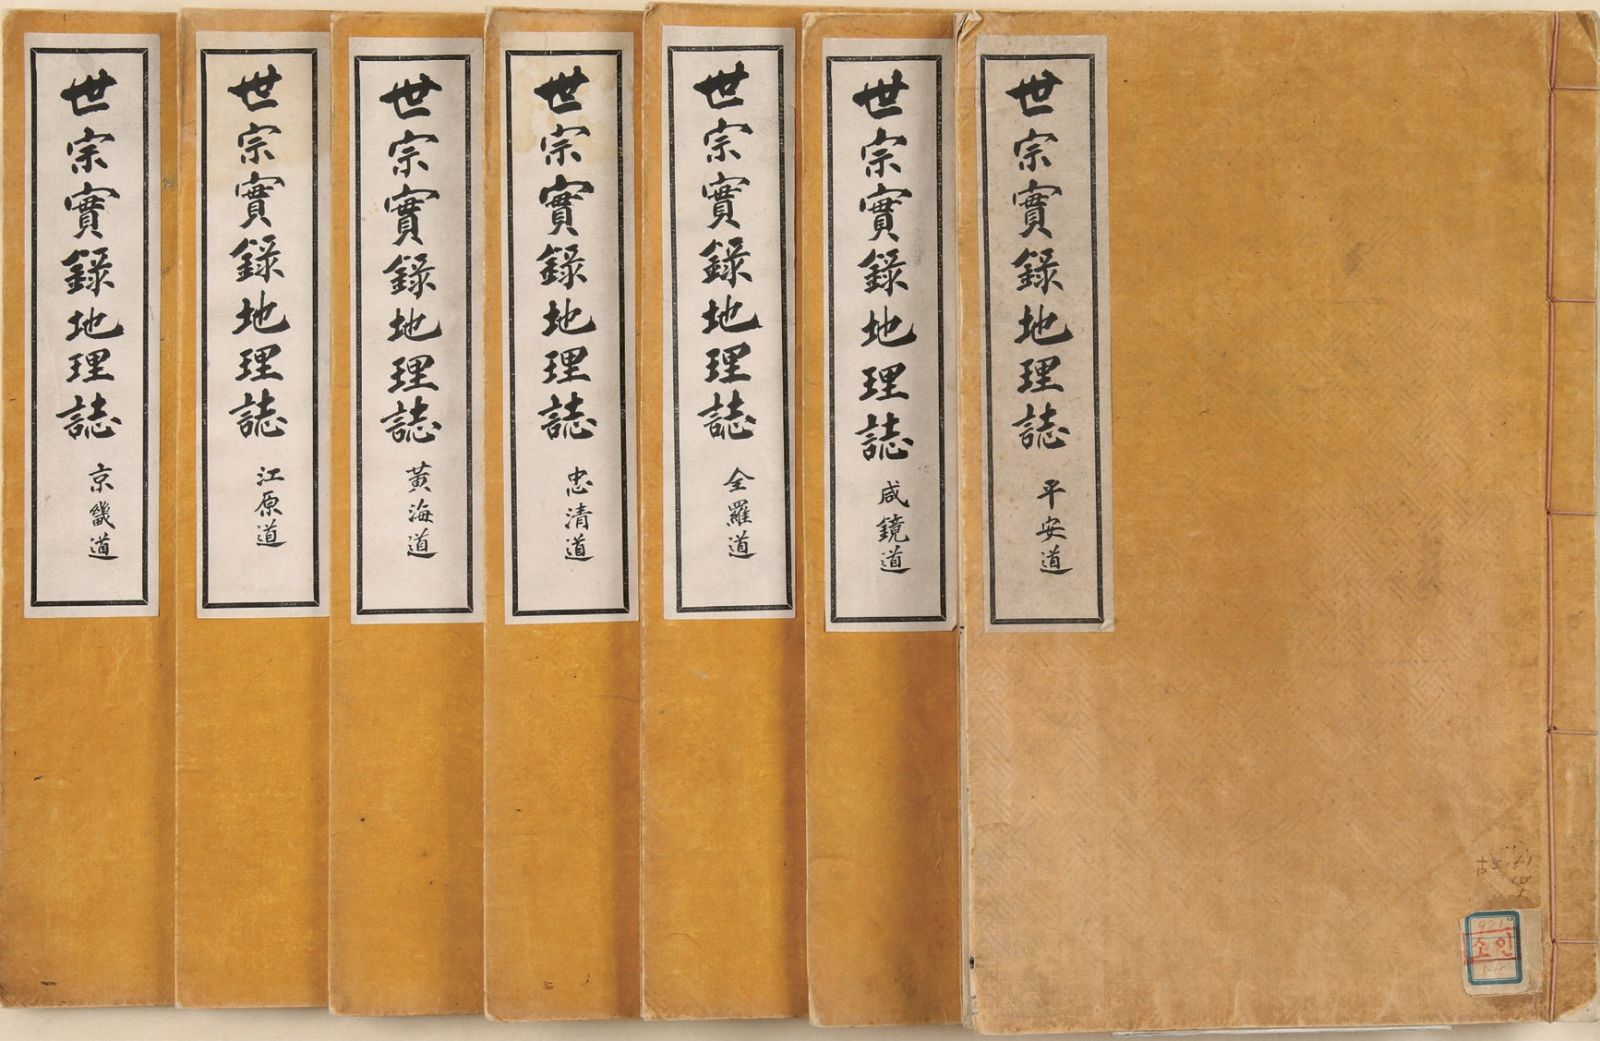 世宗實錄地理誌 京畿道
世宗實錄地理誌 江原道
世宗實錄地理誌 黃海道
世宗實錄地理誌 忠清道
世宗實錄地理誌 全羅道
世宗實錄地理誌 咸鏡道
世宗實錄地理誌 平安道
소인